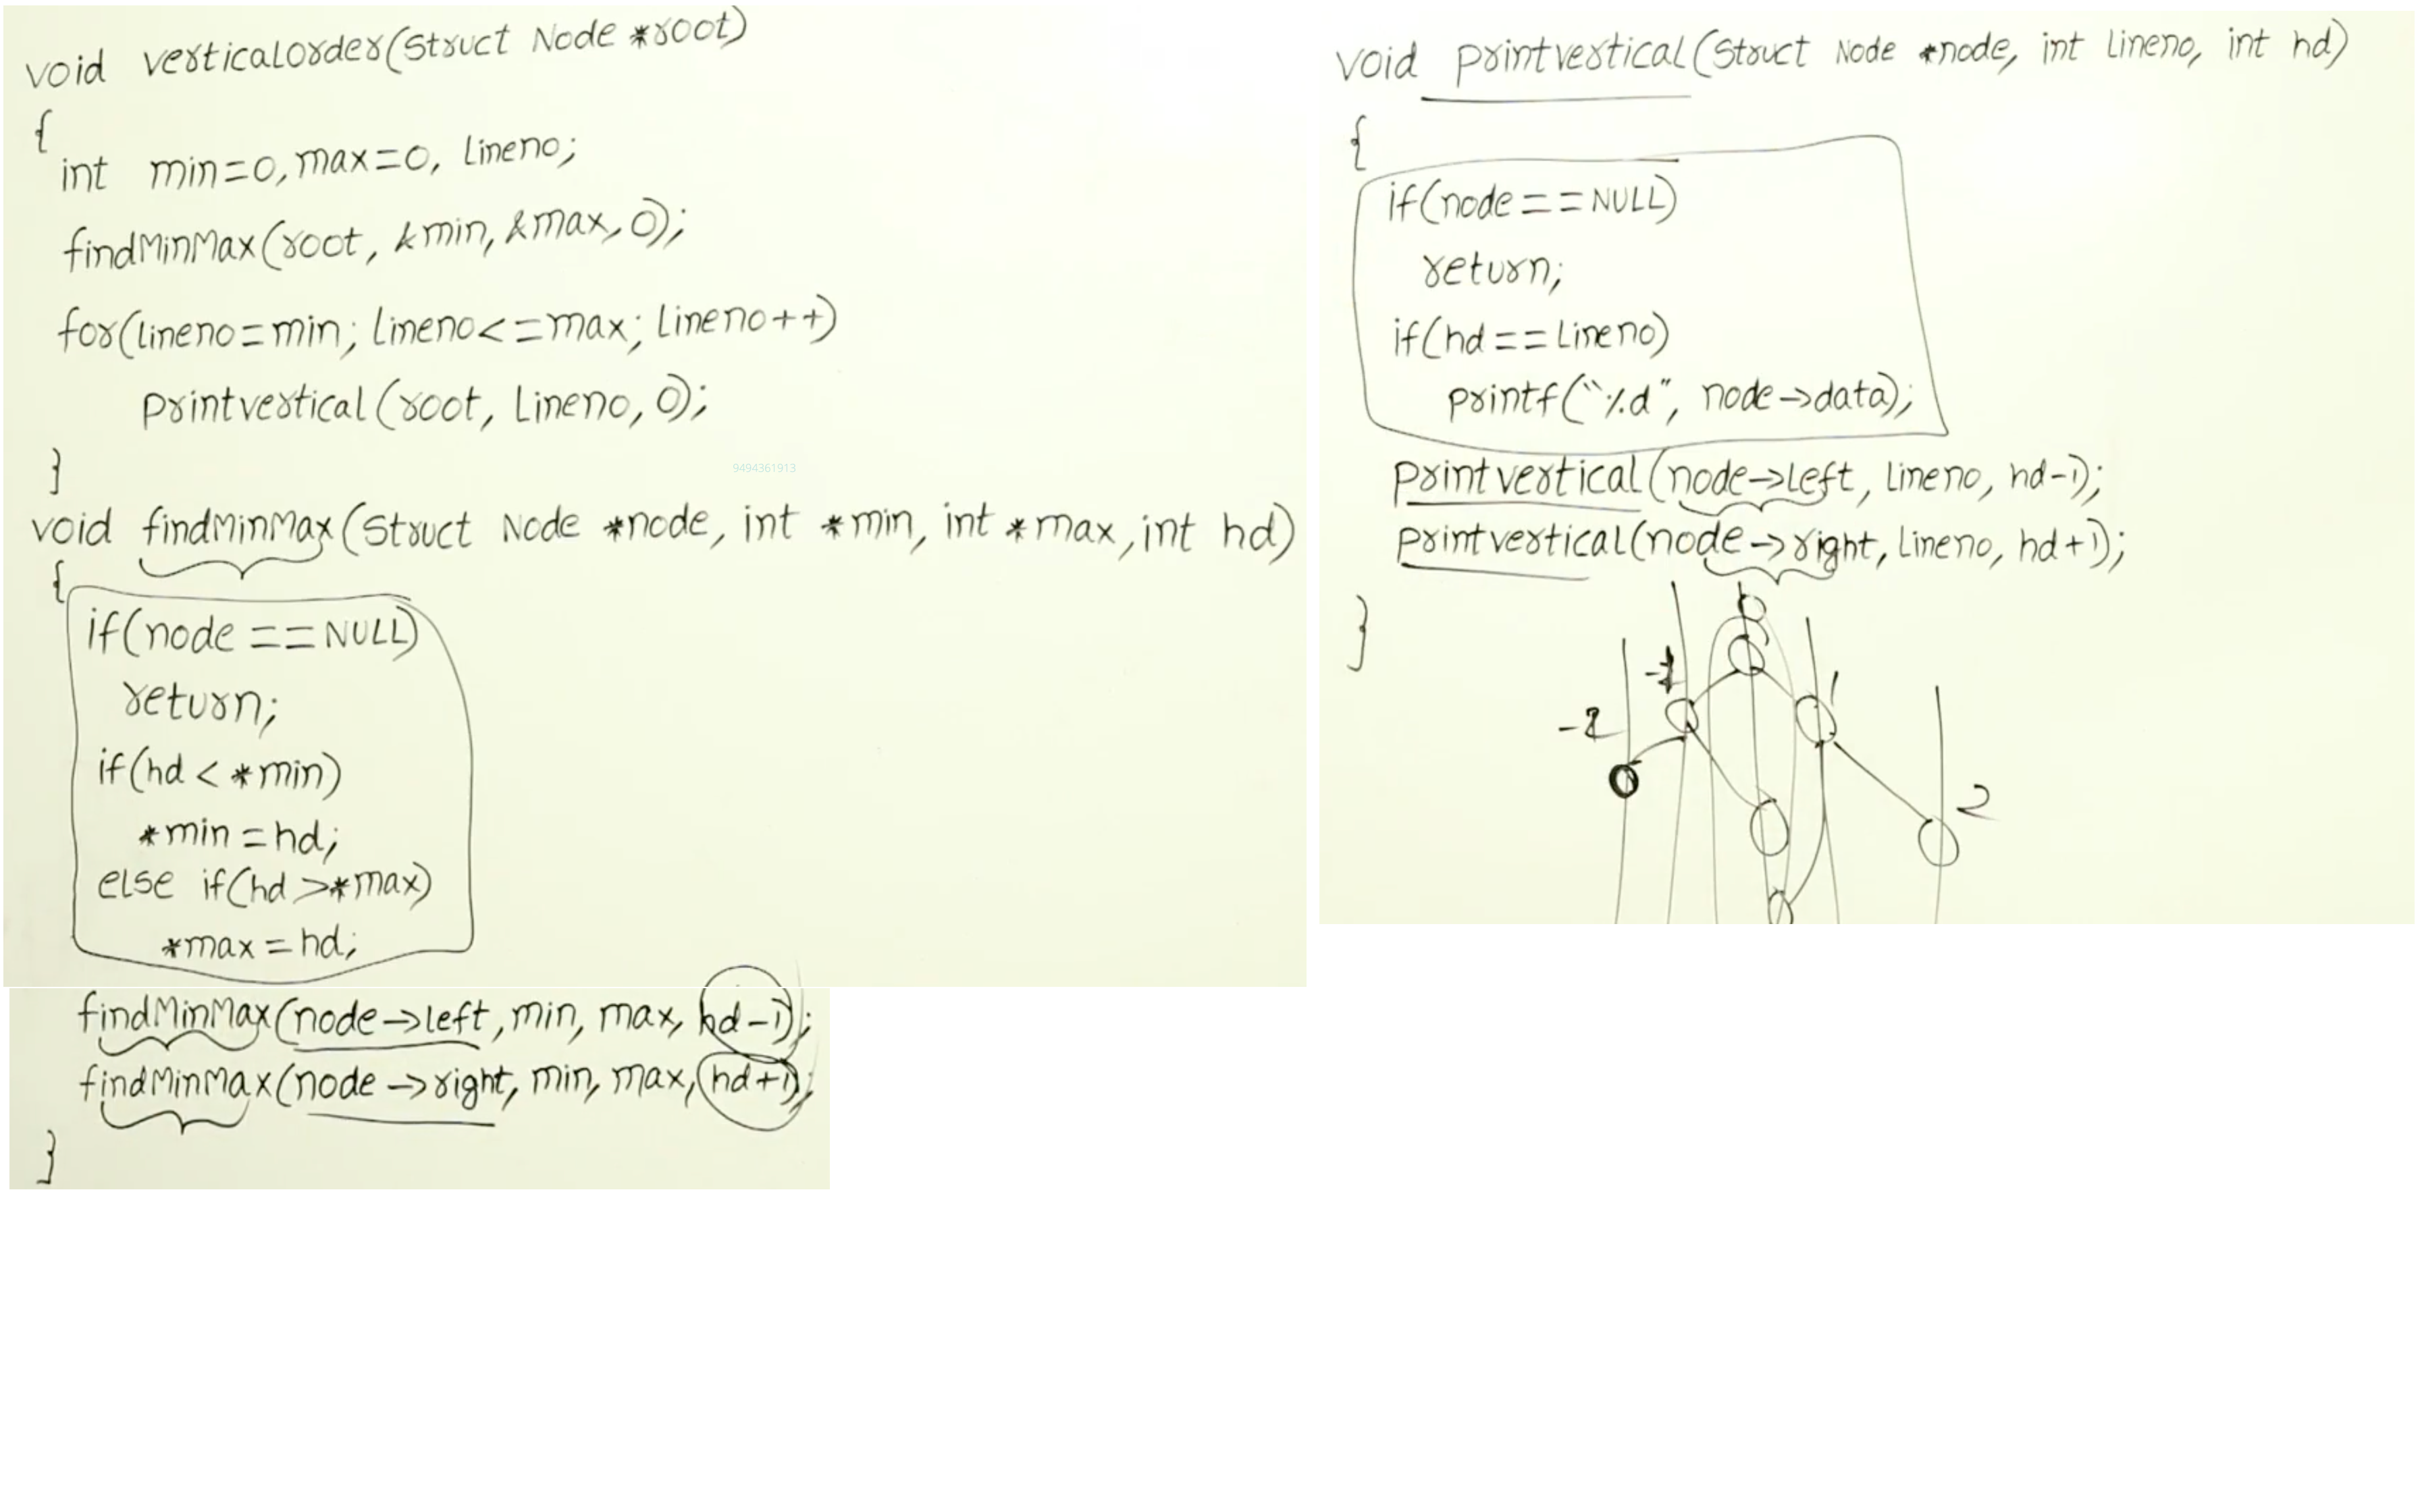 void verticalorder(struct Node *root)
{
int min=0, max=0, lineno;
findMinMax(root, &min, &max, 0);
for(lineno=min; lineno<=max; lineno++)
printvertical(root, lineno, 0);
}
9494361913
void findMinMax(struct Node *node, int *min, int *max, int hd)
{
if(node ==NULL)
return;
if(hd < *min)
*min = hd;
else if(hd >*max)
*max = hd;
findMinMax(node->left, min, max, hd-1);
findMinMax(node->right, min, max, hd+1);
}
void printvertical(struct Node *node, int lineno, int hd)
{
if(node==NULL)
return;
if(hd==lineno)
printf("%d", node->data);
printvertical(node->left, lineno, hd-1);
printvertical(node->right, lineno, hd+1);
}
0
-1
1
-2
2